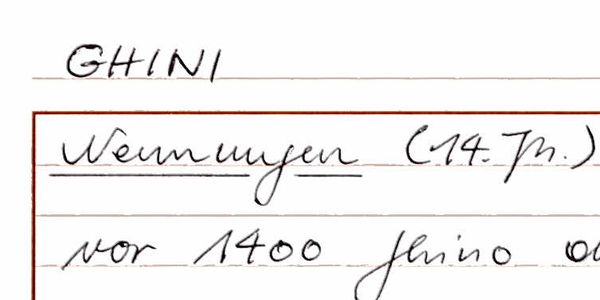 GHINI
Nennungen (14. Jh.)
vor 1400 Ghino